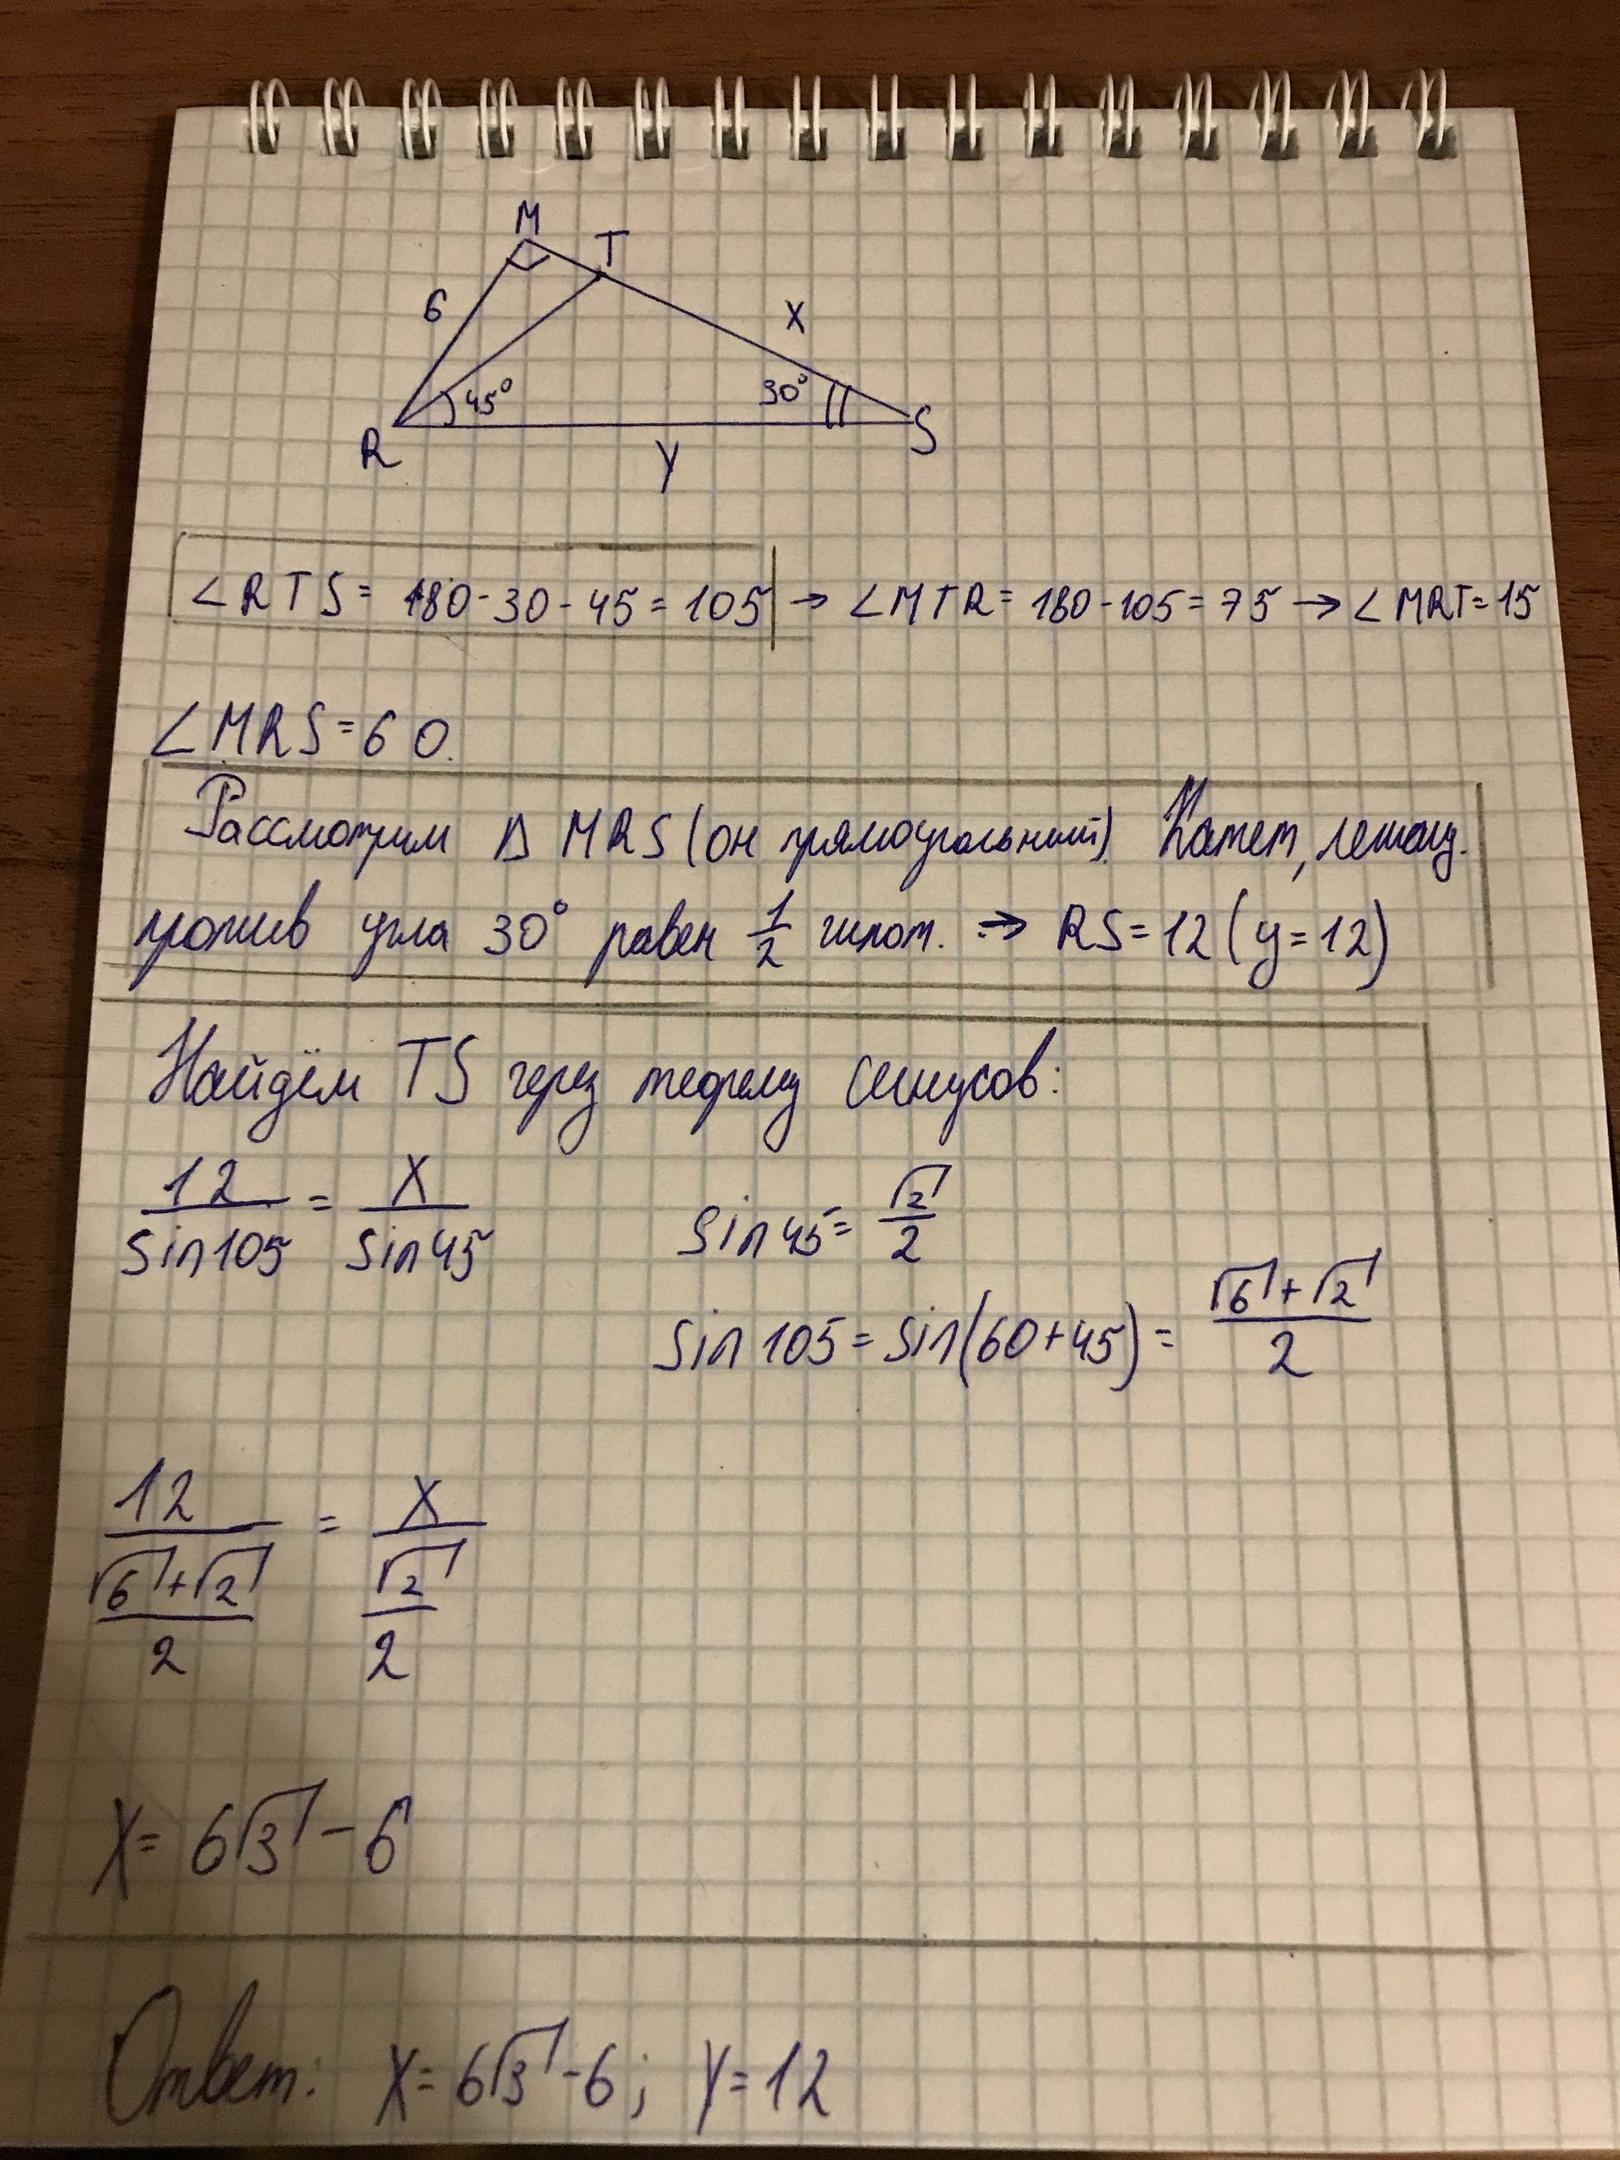 M T
6 X
45° 30°
R S
y
∠RTS = 180-30-45=105 → ∠MTR = 180-105=75 → ∠MRT=15
∠MRS=60.
Рассмотрим Δ MRS (он прямоугольный). Катет, лежащ.
против угла 30° равен 1/2 гипот. ⇒ RS=12 (y=12)
Найдём TS через теорему синусов:
12/sin105 = X/sin45 sin45=√2/2
sin105=sin(60+45)=(√6+√2)/2
12/((√6+√2)/2) = X/(√2/2)
X=6√3-6
Ответ: X=6√3-6; y=12